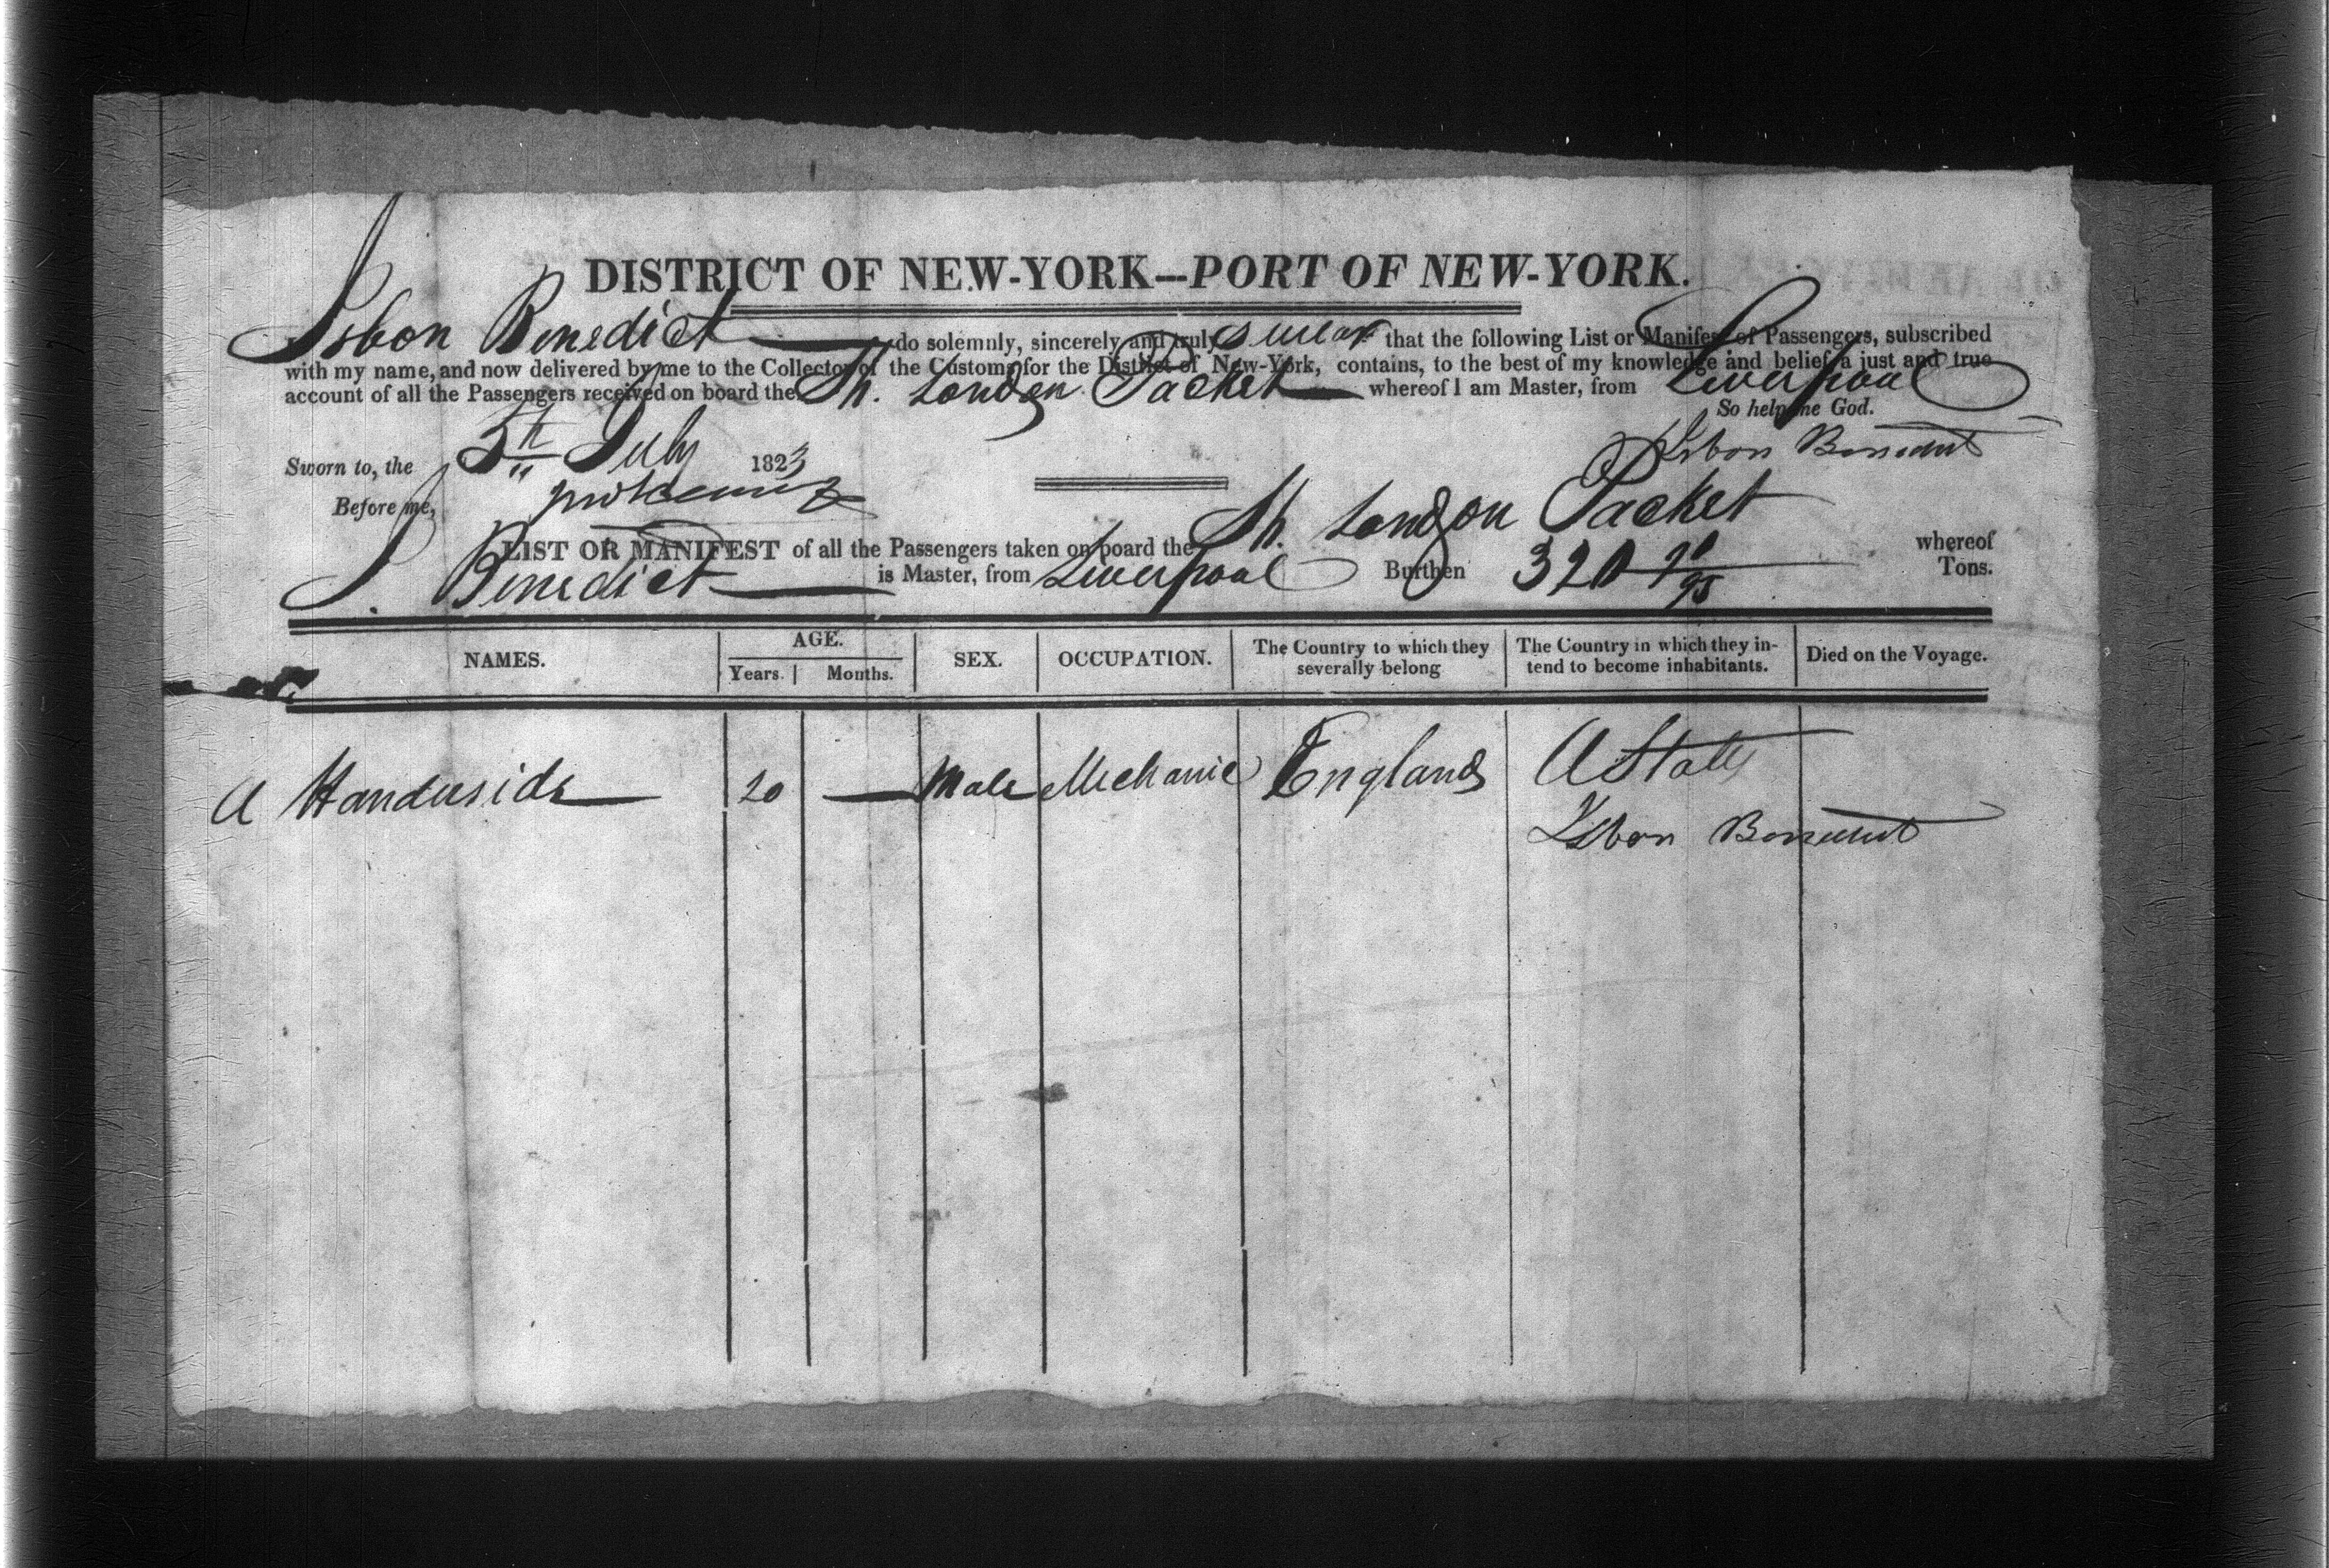 DISTRICT OF NEW-YORK—PORT OF NEW-YORK.
I, Isbon Benedict do solemnly, sincerely and truly swear that the following List or Manifest of Passengers, subscribed
with my name, and now delivered by me to the Collector of the Customs for the District of New-York, contains, to the best of my knowledge and belief, a just and true
account of all the Passengers received on board the Sh. London Packet whereof I am Master, from Liverpool
So help me God.
Sworn to, the 5th July 1823 Isbon Benedict
Before me,
LIST OR MANIFEST of all the Passengers taken on board the Sh. London Packet whereof
I. Benedict is Master, from Liverpool Burthen 320 Tons.
NAMES. AGE. Years. Months. SEX. OCCUPATION. The Country to which they severally belong The Country in which they intend to become inhabitants. Died on the Voyage.
A Handerside 20 — Male Mechanic England U States
Isbon Benedict